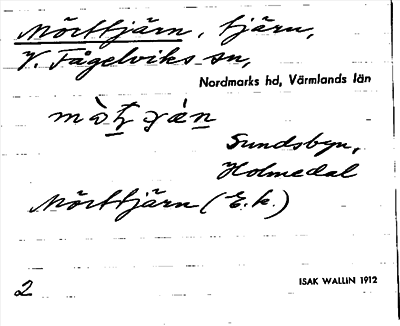 Mörttjärn, tjärn,
V. Fågelviks sn,
Nordmarks hd, Värmlands län
Sundsbyn,
Holmedal
Mörttjärn (E.k.)
2
ISAK WALLIN 1912